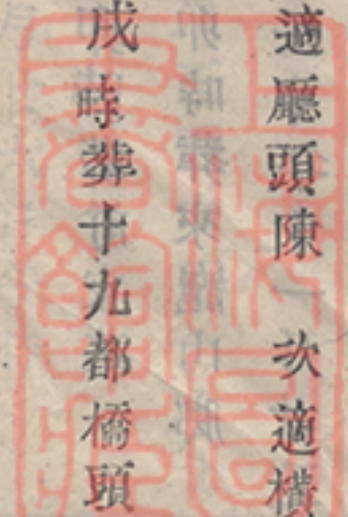 適廳頭陳 次適橫
戌時葬十九都橋頭